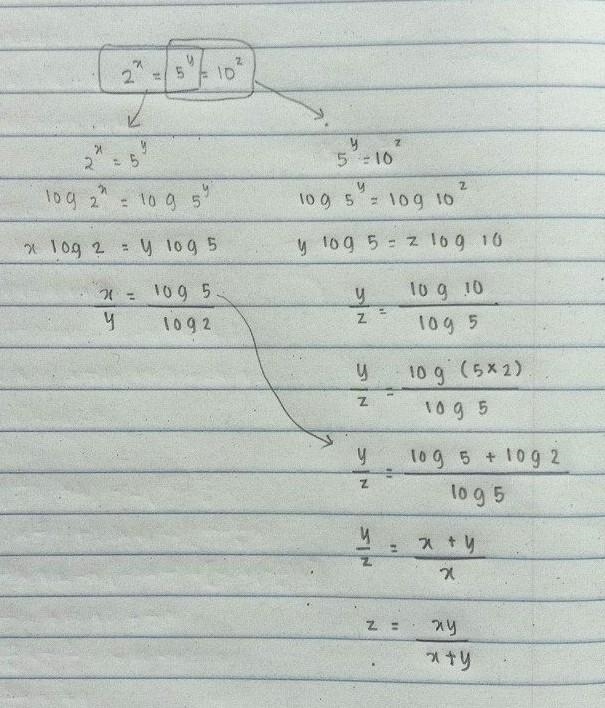 2^x = 5^y = 10^z
2^x = 5^y
log 2^x = log 5^y
x log 2 = y log 5
x/y = log 5 / log 2
5^y = 10^z
log 5^y = log 10^z
y log 5 = z log 10
y/z = log 10 / log 5
y/z = log (5×2) / log 5
y/z = log 5 + log 2 / log 5
y/z = x + y / x
z = xy / x+y